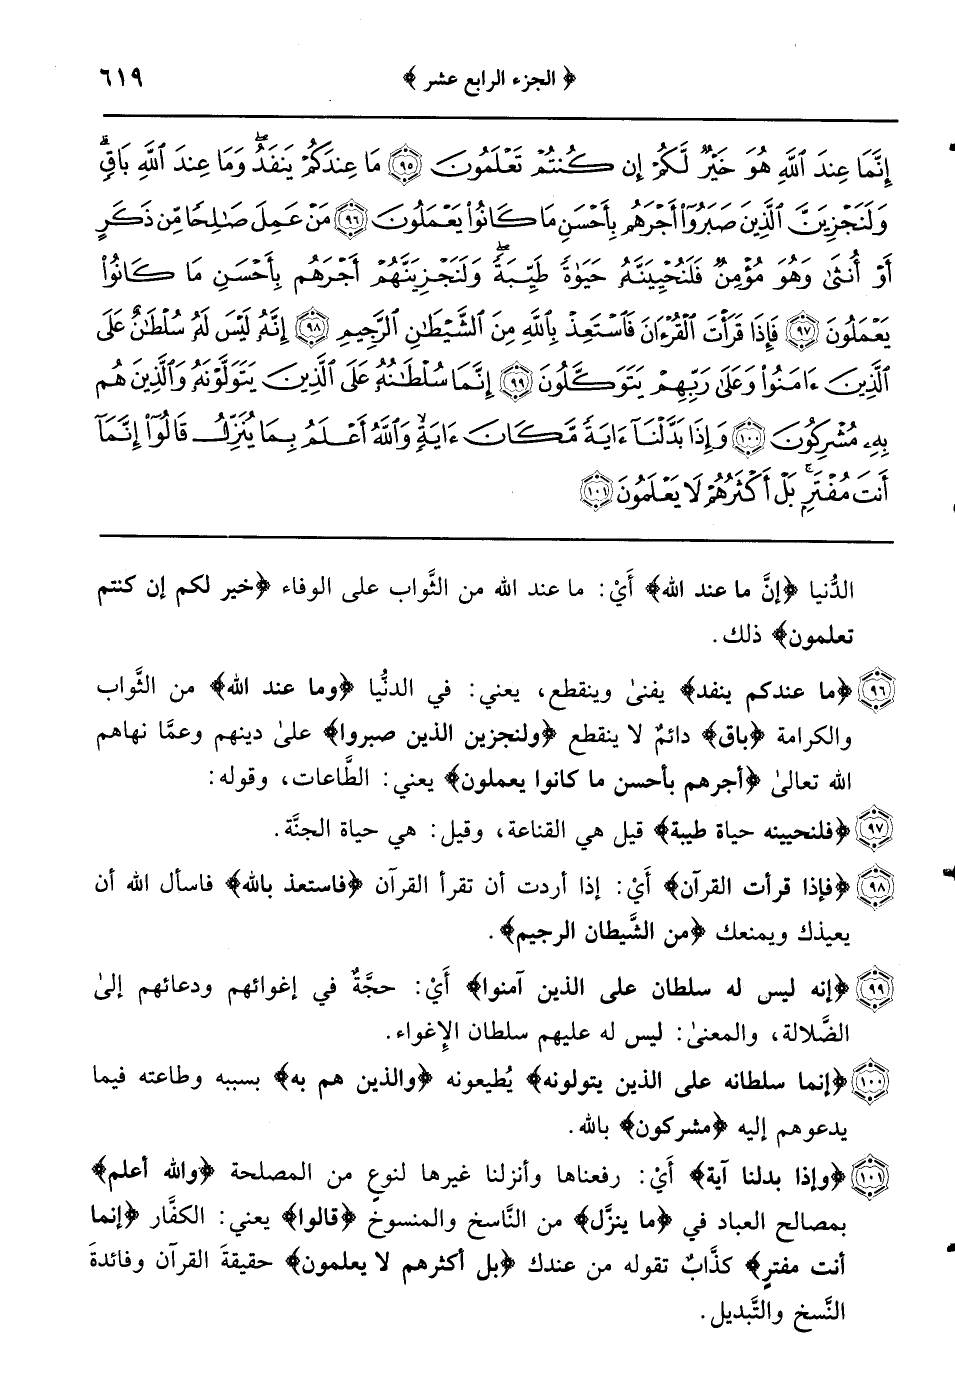 ﴿ الجزء الرابع عشر ﴾ ٦١٩
إِنَّمَا عِندَ ٱللَّهِ هُوَ خَيْرٌ لَّكُمْ إِن كُنتُمْ تَعْلَمُونَ ٩٥ مَا عِندَكُمْ يَنفَدُ ۖ وَمَا عِندَ ٱللَّهِ بَاقٍ ۗ
وَلَنَجْزِيَنَّ ٱلَّذِينَ صَبَرُوٓا۟ أَجْرَهُم بِأَحْسَنِ مَا كَانُوا۟ يَعْمَلُونَ ٩٦ مَنْ عَمِلَ صَـٰلِحًا مِّن ذَكَرٍ
أَوْ أُنثَىٰ وَهُوَ مُؤْمِنٌ فَلَنُحْيِيَنَّهُۥ حَيَوٰةً طَيِّبَةً ۖ وَلَنَجْزِيَنَّهُمْ أَجْرَهُم بِأَحْسَنِ مَا كَانُوا۟
يَعْمَلُونَ ٩٧ فَإِذَا قَرَأْتَ ٱلْقُرْءَانَ فَٱسْتَعِذْ بِٱللَّهِ مِنَ ٱلشَّيْطَـٰنِ ٱلرَّجِيمِ ٩٨ إِنَّهُۥ لَيْسَ لَهُۥ سُلْطَـٰنٌ عَلَى
ٱلَّذِينَ ءَامَنُوا۟ وَعَلَىٰ رَبِّهِمْ يَتَوَكَّلُونَ ٩٩ إِنَّمَا سُلْطَـٰنُهُۥ عَلَى ٱلَّذِينَ يَتَوَلَّوْنَهُۥ وَٱلَّذِينَ هُم
بِهِۦ مُشْرِكُونَ ١٠٠ وَإِذَا بَدَّلْنَآ ءَايَةً مَّكَانَ ءَايَةٍ ۙ وَٱللَّهُ أَعْلَمُ بِمَا يُنَزِّلُ قَالُوٓا۟ إِنَّمَآ
أَنتَ مُفْتَرٍۭ ۚ بَلْ أَكْثَرُهُمْ لَا يَعْلَمُونَ ١٠١
الدُّنيا ﴿إنَّ ما عند الله﴾ أَيْ: ما عند الله من الثَّواب على الوفاء ﴿خير لكم إن كنتم
تعلمون﴾ ذلك.
٩٦ ﴿ما عندكم ينفد﴾ يفنىٰ وينقطع، يعني: في الدنُّيا ﴿وما عند الله﴾ من الثَّواب
والكرامة ﴿باق﴾ دائمٌ لا ينقطع ﴿ولنجزين الذين صبروا﴾ علىٰ دينهم وعمَّا نهاهم
الله تعالىٰ ﴿أجرهم بأحسن ما كانوا يعملون﴾ يعني: الطَّاعات، وقوله:
٩٧ ﴿فلنحيينه حياة طيبة﴾ قيل هي القناعة، وقيل: هي حياة الجنَّة.
٩٨ ﴿فإذا قرأت القرآن﴾ أَيْ: إذا أردت أن تقرأ القرآن ﴿فاستعذ بالله﴾ فاسأل الله أن
يعيذك ويمنعك ﴿من الشَّيطان الرجيم﴾.
٩٩ ﴿إنه ليس له سلطان على الذين آمنوا﴾ أَيْ: حجَّةٌ في إغوائهم ودعائهم إلىٰ
الضَّلالة، والمعنىٰ: ليس له عليهم سلطان الإِغواء.
١٠٠ ﴿إنما سلطانه على الذين يتولونه﴾ يُطيعونه ﴿والذين هم به﴾ بسببه وطاعته فيما
يدعوهم إليه ﴿مشركون﴾ بالله.
١٠١ ﴿وإذا بدلنا آية﴾ أَيْ: رفعناها وأنزلنا غيرها لنوعٍ من المصلحة ﴿والله أعلم﴾
بمصالح العباد في ﴿ما ينزَّل﴾ من النَّاسخ والمنسوخ ﴿قالوا﴾ يعني: الكفَّار ﴿إنما
أنت مفترٍ﴾ كذَّابٌ تقوله من عندك ﴿بل أكثرهم لا يعلمون﴾ حقيقةَ القرآن وفائدةَ
النَّسخ والتَّبديل.